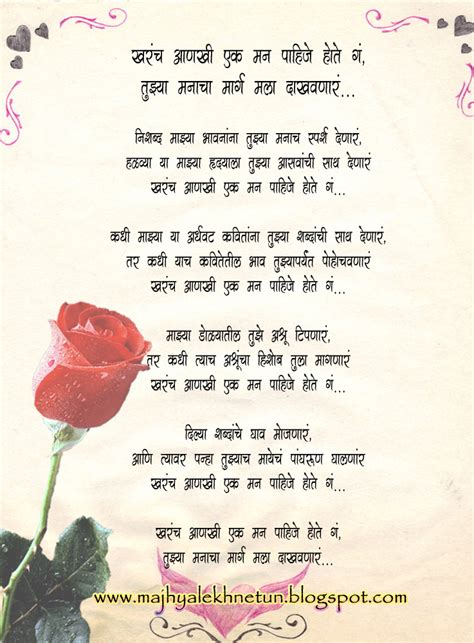 खरंच आणखी एक मन पाहिजे होते गं,
तुझ्या मनाचा मार्ग मला दाखवणारं...
निशब्द माझ्या भावनांना तुझ्या मनाच स्पर्श देणारं,
हळव्या या माझ्या हृदयाला तुझ्या आसवांची साथ देणारं
खरंच आणखी एक मन पाहिजे होते गं...
कधी माझ्या या अर्धवट कवितांना तुझ्या शब्दांची साथ देणारं,
तर कधी याच कवितेतील भाव तुझ्यापर्यंत पोहोचवणारं
खरंच आणखी एक मन पाहिजे होते गं...
माझ्या डोळ्यातील तुझे अश्रू टिपणारं,
तर कधी त्याच अश्रूंचा हिशोब तुला मागणारं
खरंच आणखी एक मन पाहिजे होते गं...
दिल्या शब्दांचे घाव मोजणारं,
आणि त्यावर पन्हा तुझ्याच मायेचं पांघरूण घालणारं
खरंच आणखी एक मन पाहिजे होते गं...
खरंच आणखी एक मन पाहिजे होते गं,
तुझ्या मनाचा मार्ग मला दाखवणारं...
www.majhyalekhnetun.blogspot.com